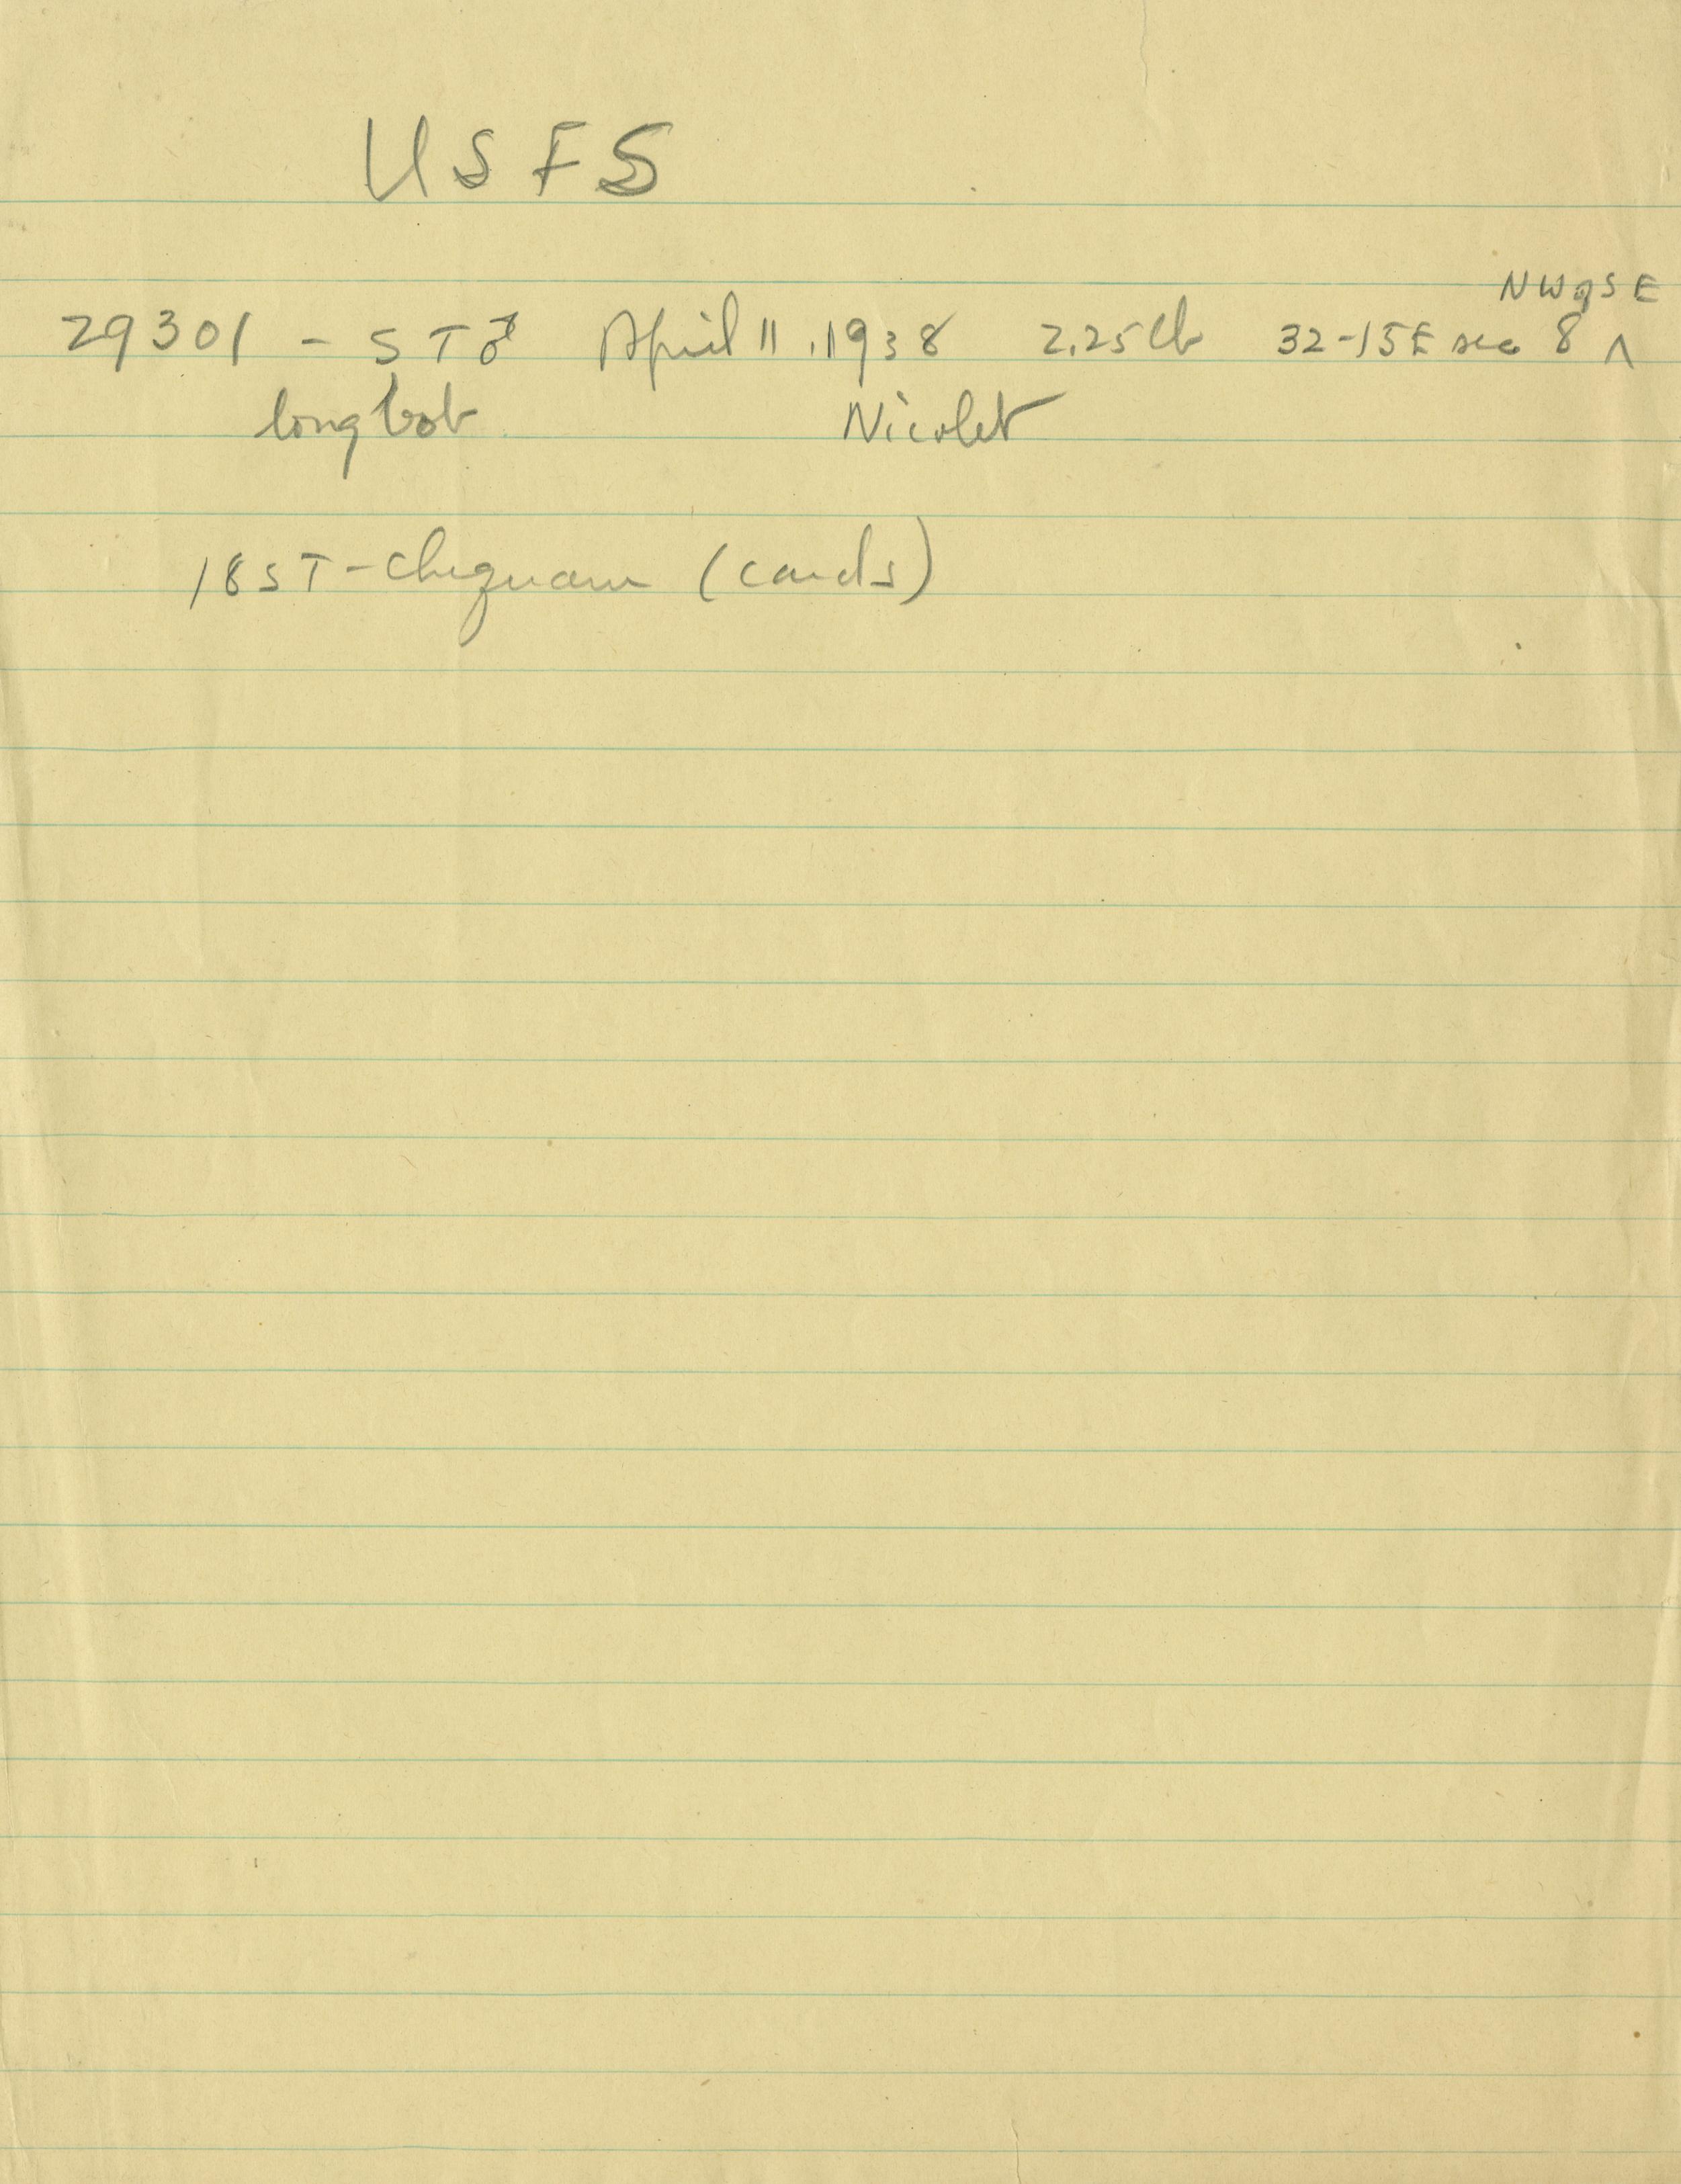 USFS
29301 - ST♂ April 11, 1938 2.25 lb 32-15E sec 8 ^ NW of SE
long bob Nicolet
18 ST - Chequam (cards)